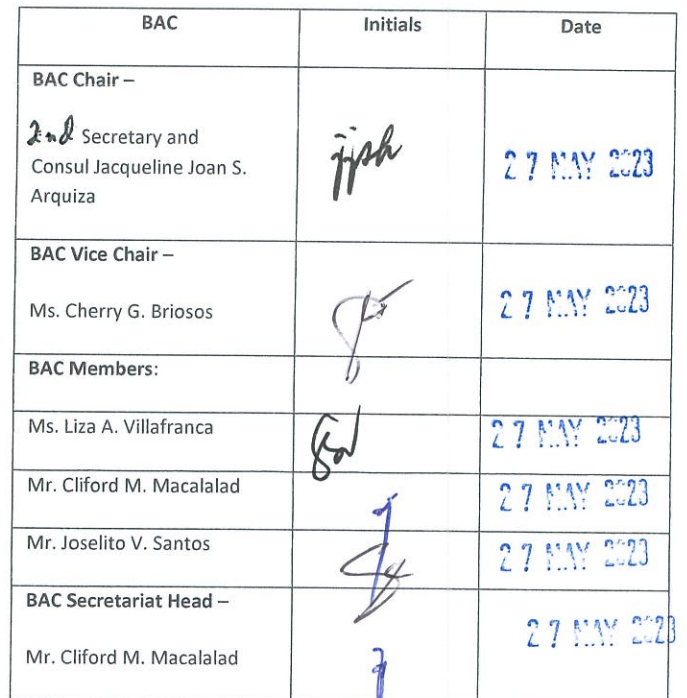 BAC Initials Date
BAC Chair –
2nd Secretary and
Consul Jacqueline Joan S.
Arquiza
jjsa
27 MAY 2023
BAC Vice Chair –
Ms. Cherry G. Briosos
27 MAY 2023
BAC Members:
Ms. Liza A. Villafranca
27 MAY 2023
Mr. Cliford M. Macalalad
27 MAY 2023
Mr. Joselito V. Santos
27 MAY 2023
BAC Secretariat Head –
27 MAY 2023
Mr. Cliford M. Macalalad